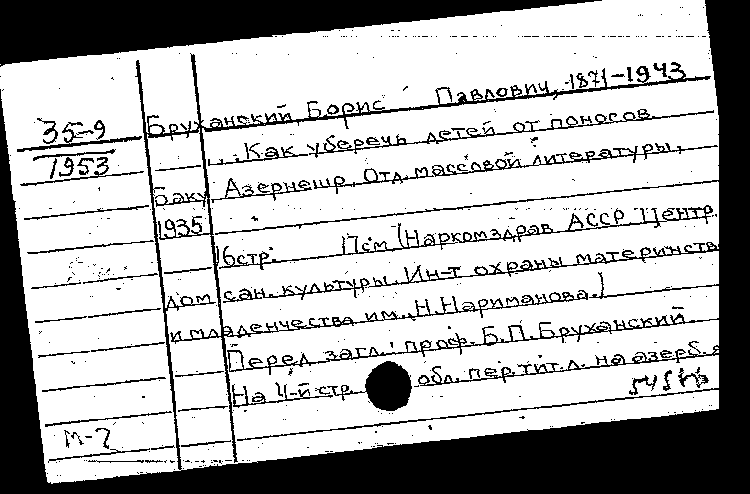 35-9
1953
Бруханский, Борис Павлович, 1871-1943
... Как уберечь детей от поносов.
Баку, Азернешр, Отд. массовой литературы,
1935
16стр. 17см (Наркомздрав АССР Центр.
дом сан. культуры. Ин-т охраны материнства
и младенчества им. Н. Нариманова.)
Перед загл.: проф. Б.П. Бруханский.
На 4-й стр. обл. пер. тит. л. на азерб. я
М-2